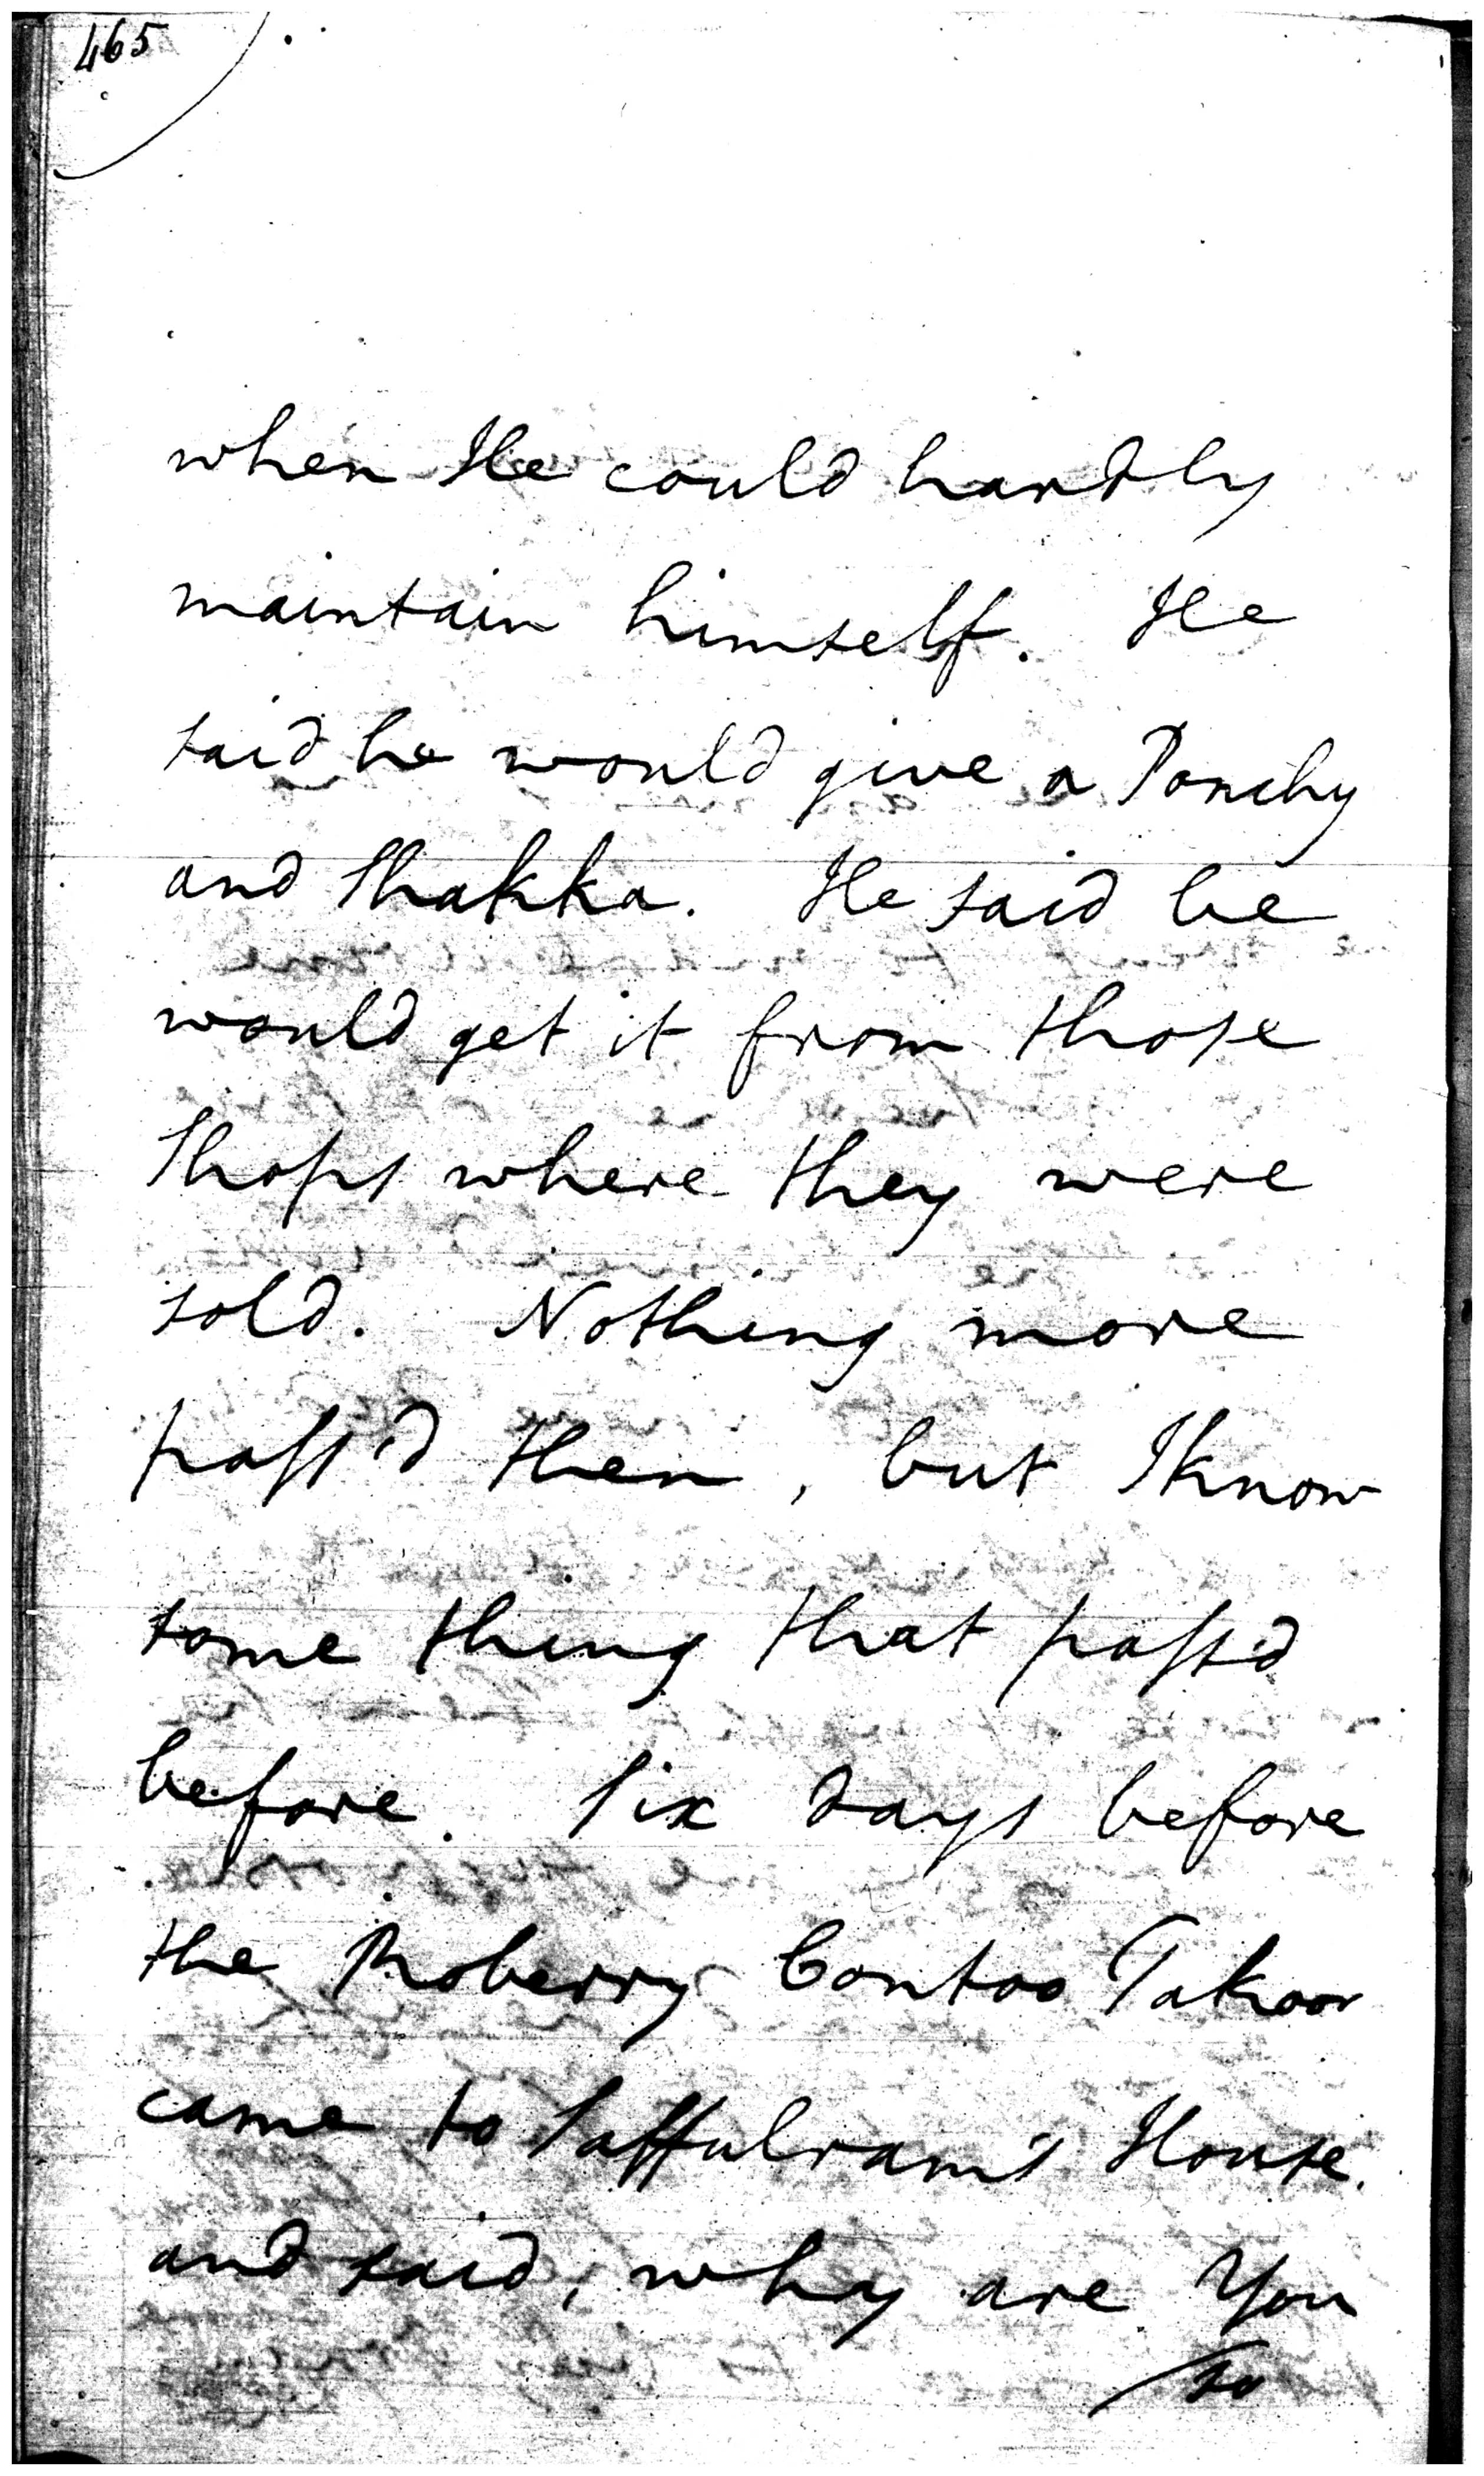 465
when He could hardly
maintain himself. He
said he would give a Ponchy
and Shakka. He said he
would get it from those
Shops where they were
sold. Nothing more
pass'd then, but I know
some thing that pass'd
before. Six days before
the Roberry Contoo Takoor
came to Saffulram's House
and said, why are You
so